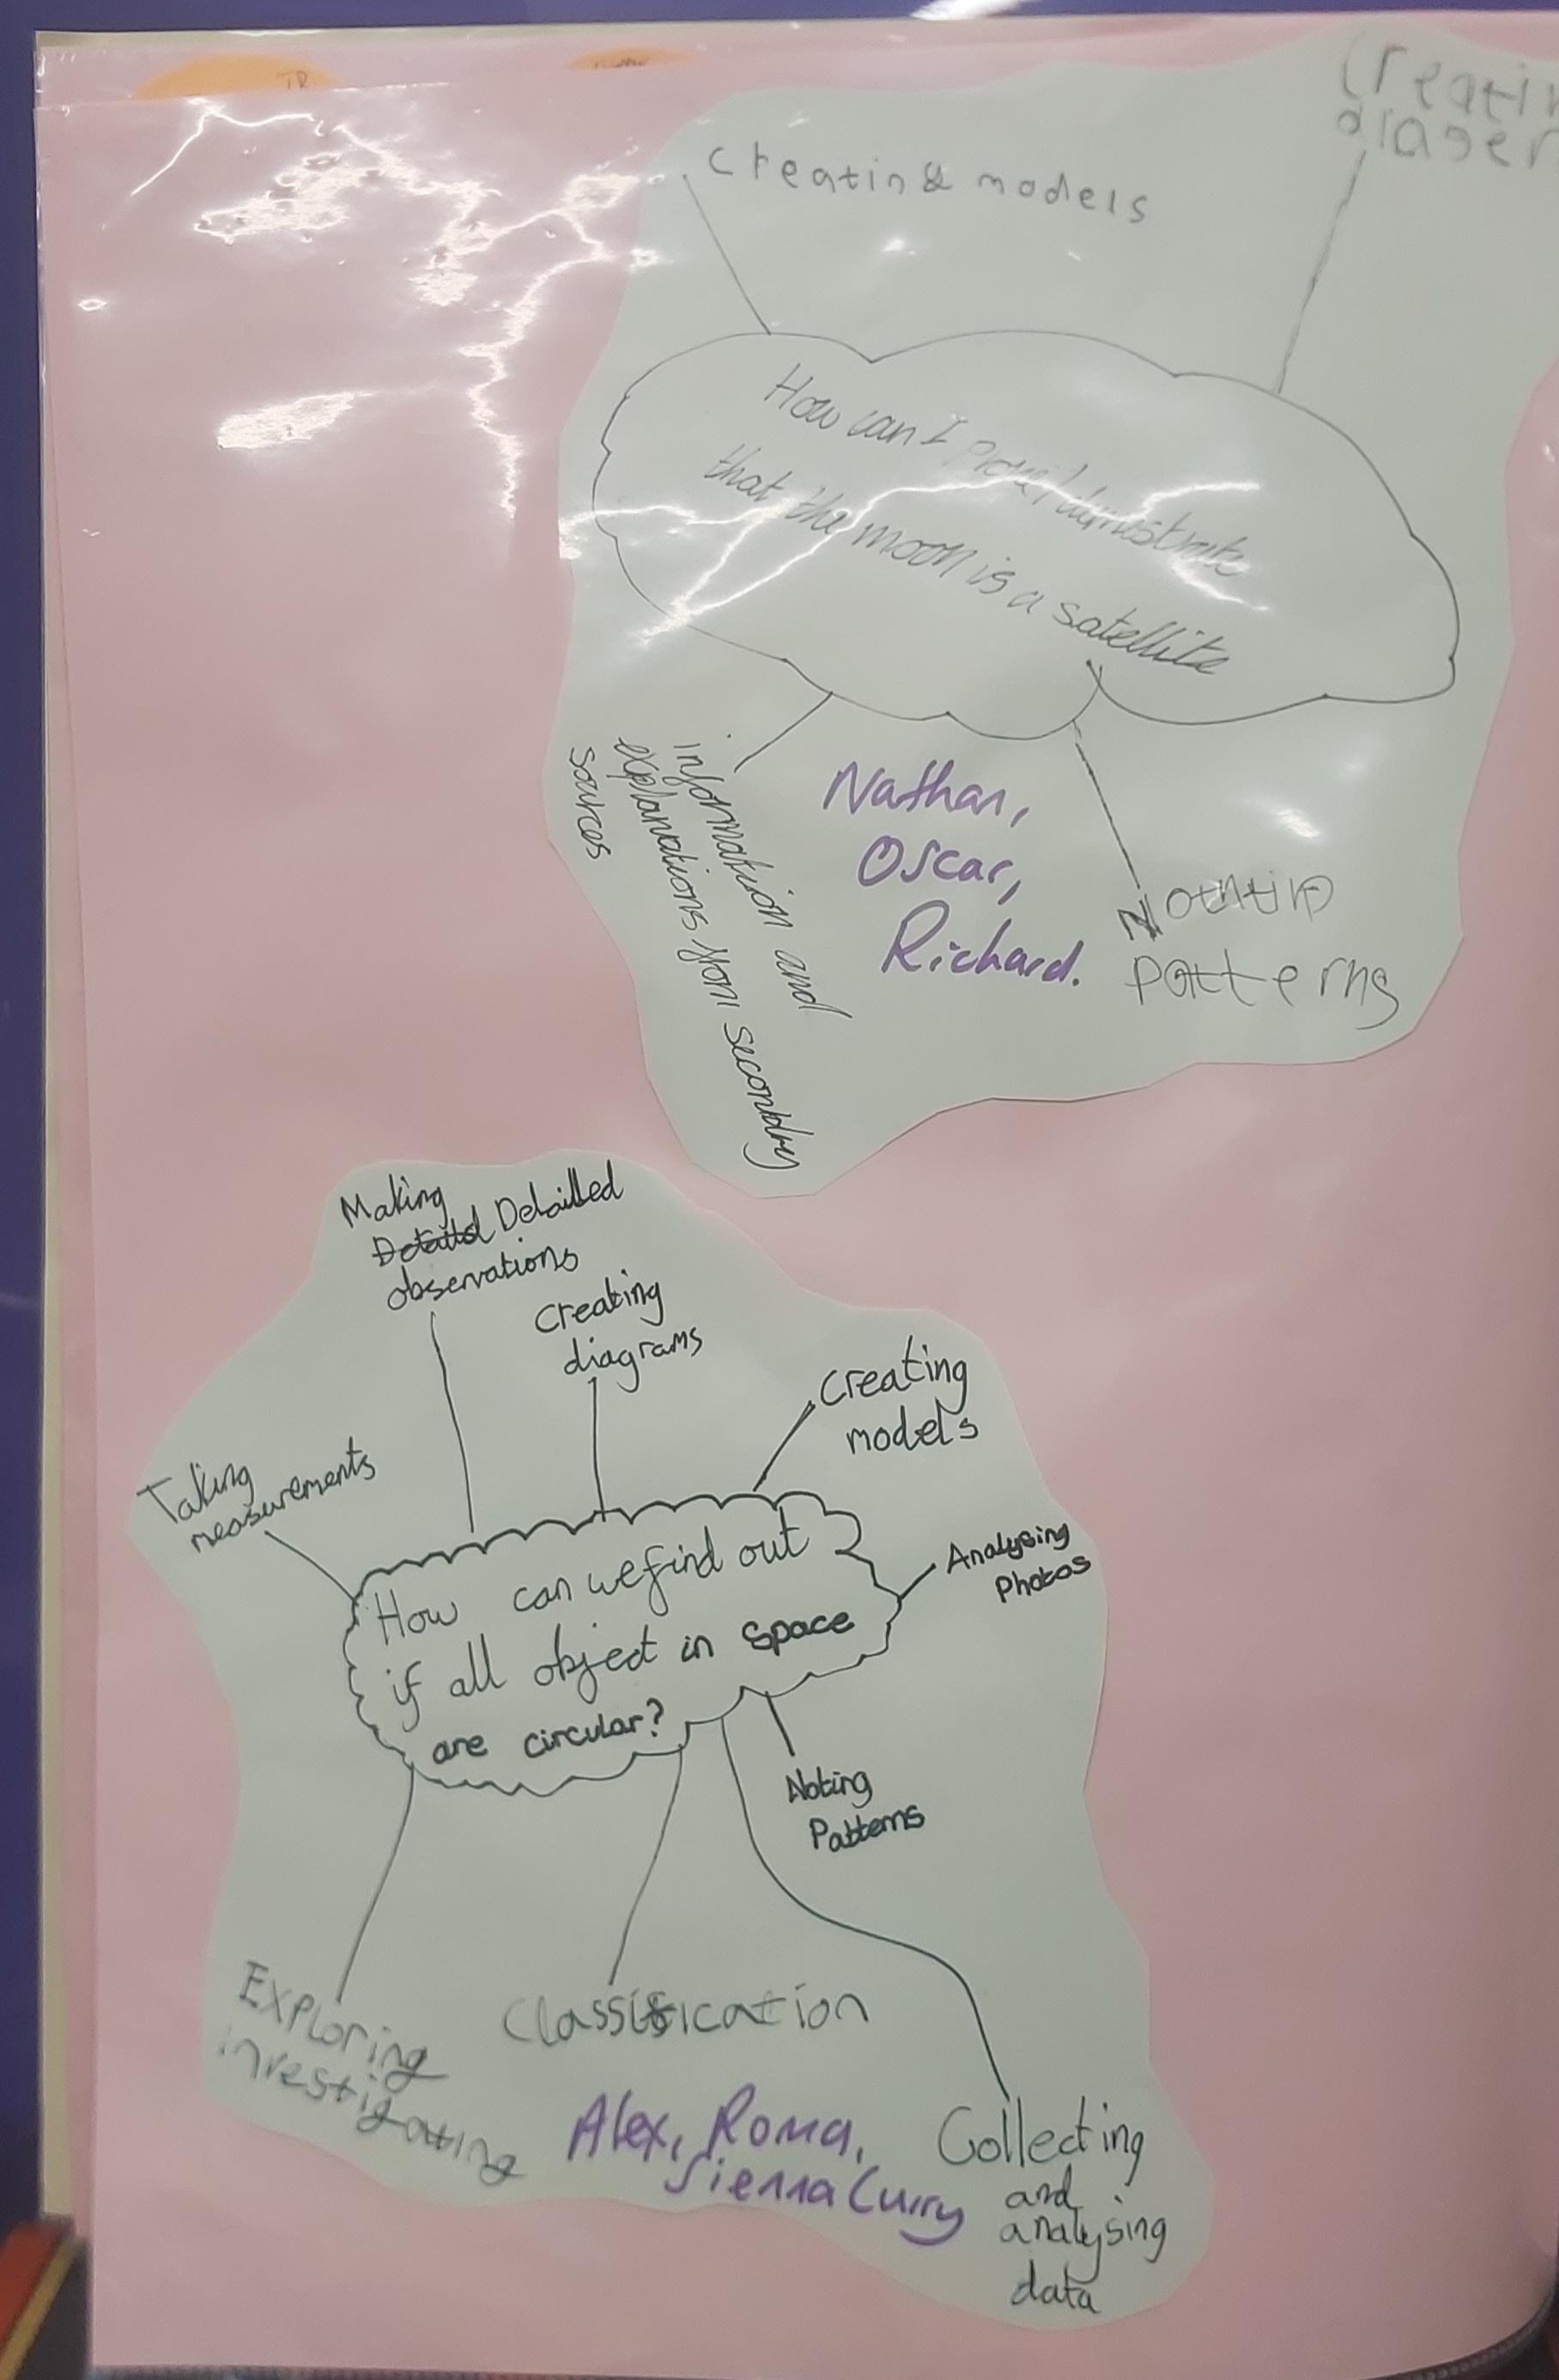 TP
Creatin
diager
Creating models
How can I Prove/demostrate
that the moon is a satellite
information and
explanations from secondry
sources
Nathan,
Oscar,
Richard.
patterns
Making
Detailled
observations
Creating
diagrams
Creating
models
Taking
measurements
Analysing
Photos
How can we find out
if all object in space
are circular?
Noting
Patterns
Exploring
investigating
Classification
Alex, Roma,
Sienna Curry
Collecting
and
analysing
data